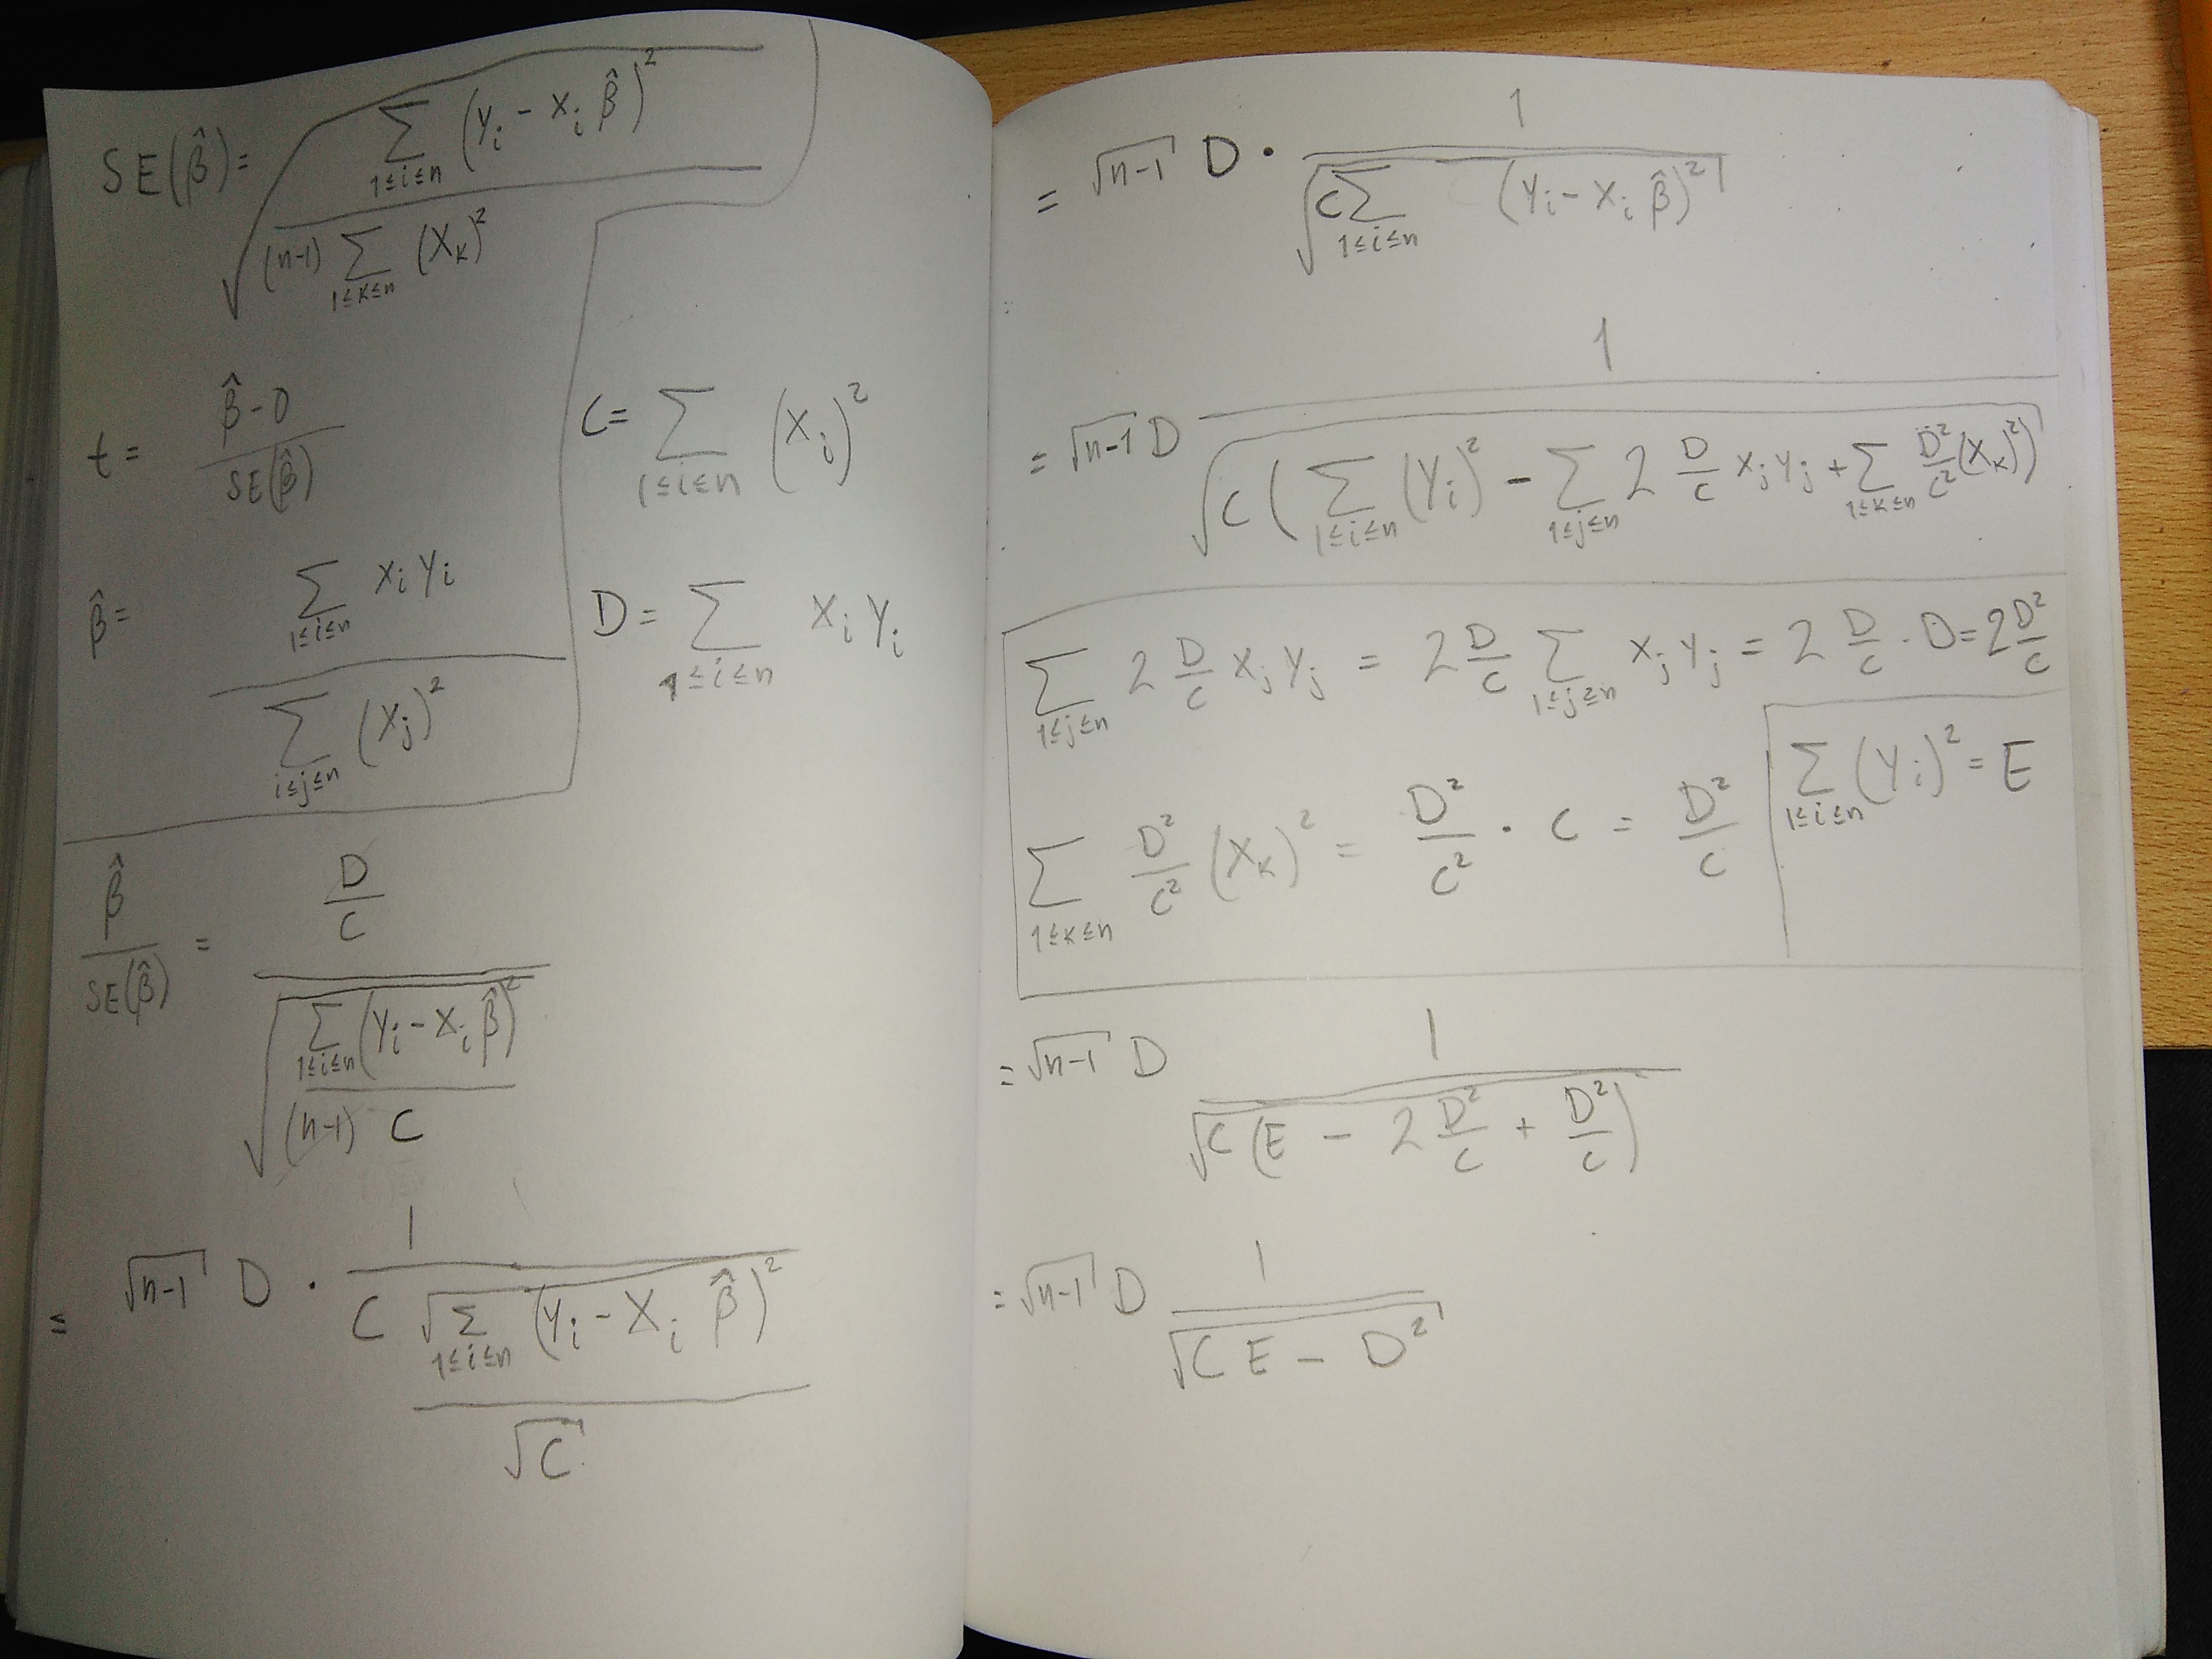 SE(β̂) = √( ∑_{1≤i≤n} (y_i - x_i β̂)² / ((n-1) ∑_{1≤k≤n} (x_k)²) )
t = (β̂ - 0) / SE(β̂)
β̂ = ∑_{1≤i≤n} x_i y_i / ∑_{i≤j≤n} (x_j)²
C = ∑_{1≤i≤n} (x_i)²
D = ∑_{1≤i≤n} x_i y_i
β̂ / SE(β̂) = (D/C) / √( ∑_{1≤i≤n} (y_i - x_i β̂)² / ((n-1) C) )
= √(n-1) D · 1 / ( C √(∑_{1≤i≤n} (y_i - x_i β̂)²) / √C )
= √(n-1) D · 1 / √( C ∑_{1≤i≤n} (y_i - x_i β̂)² )
= √(n-1) D 1 / √( C ( ∑_{1≤i≤n} (y_i)² - ∑_{1≤j≤n} 2 D/C x_j y_j + ∑_{1≤k≤n} D²/C² (x_k)² ) )
∑_{1≤j≤n} 2 D/C x_j y_j = 2 D/C ∑_{1≤j≤n} x_j y_j = 2 D/C · D = 2 D²/C
∑_{1≤k≤n} D²/C² (x_k)² = D²/C² · C = D²/C
∑_{1≤i≤n} (y_i)² = E
= √(n-1) D 1 / √( C (E - 2 D²/C + D²/C) )
= √(n-1) D 1 / √( C E - D² )